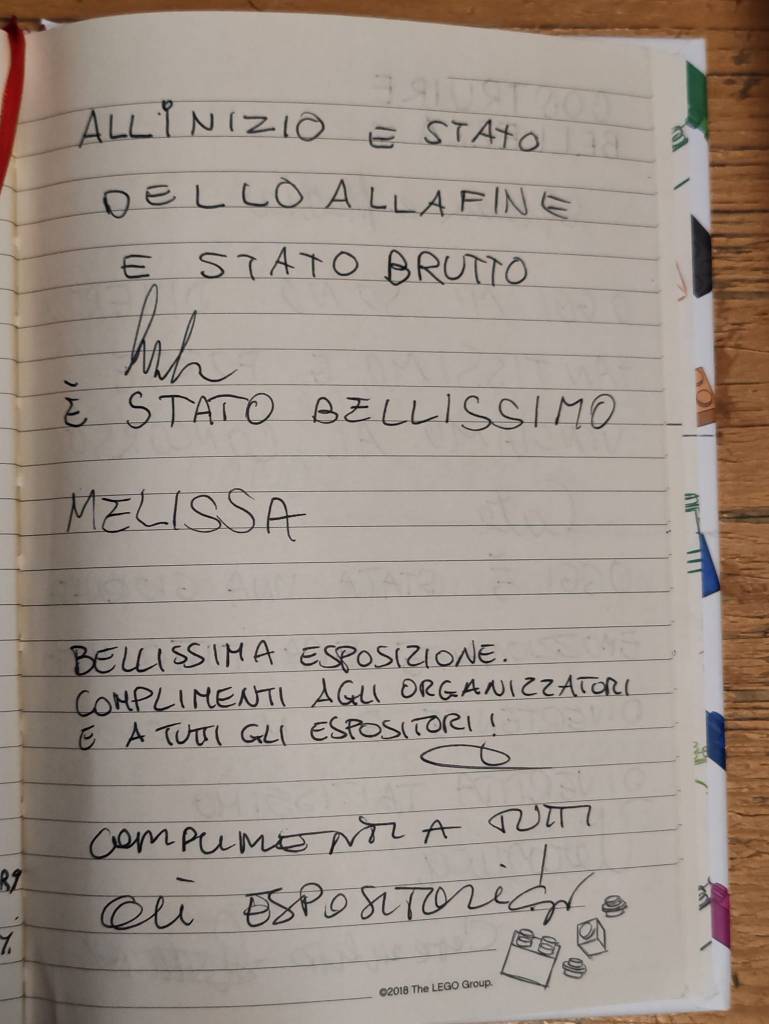 ALL'INIZIO E STATO
DELLO ALLA FINE
E STATO BRUTTO
È STATO BELLISSIMO
MELISSA
BELLISSIMA ESPOSIZIONE.
COMPLIMENTI AGLI ORGANIZZATORI
E A TUTTI GLI ESPOSITORI!
COMPLIMENTI A TUTTI
GLI ESPOSITORI!
©2018 The LEGO Group.